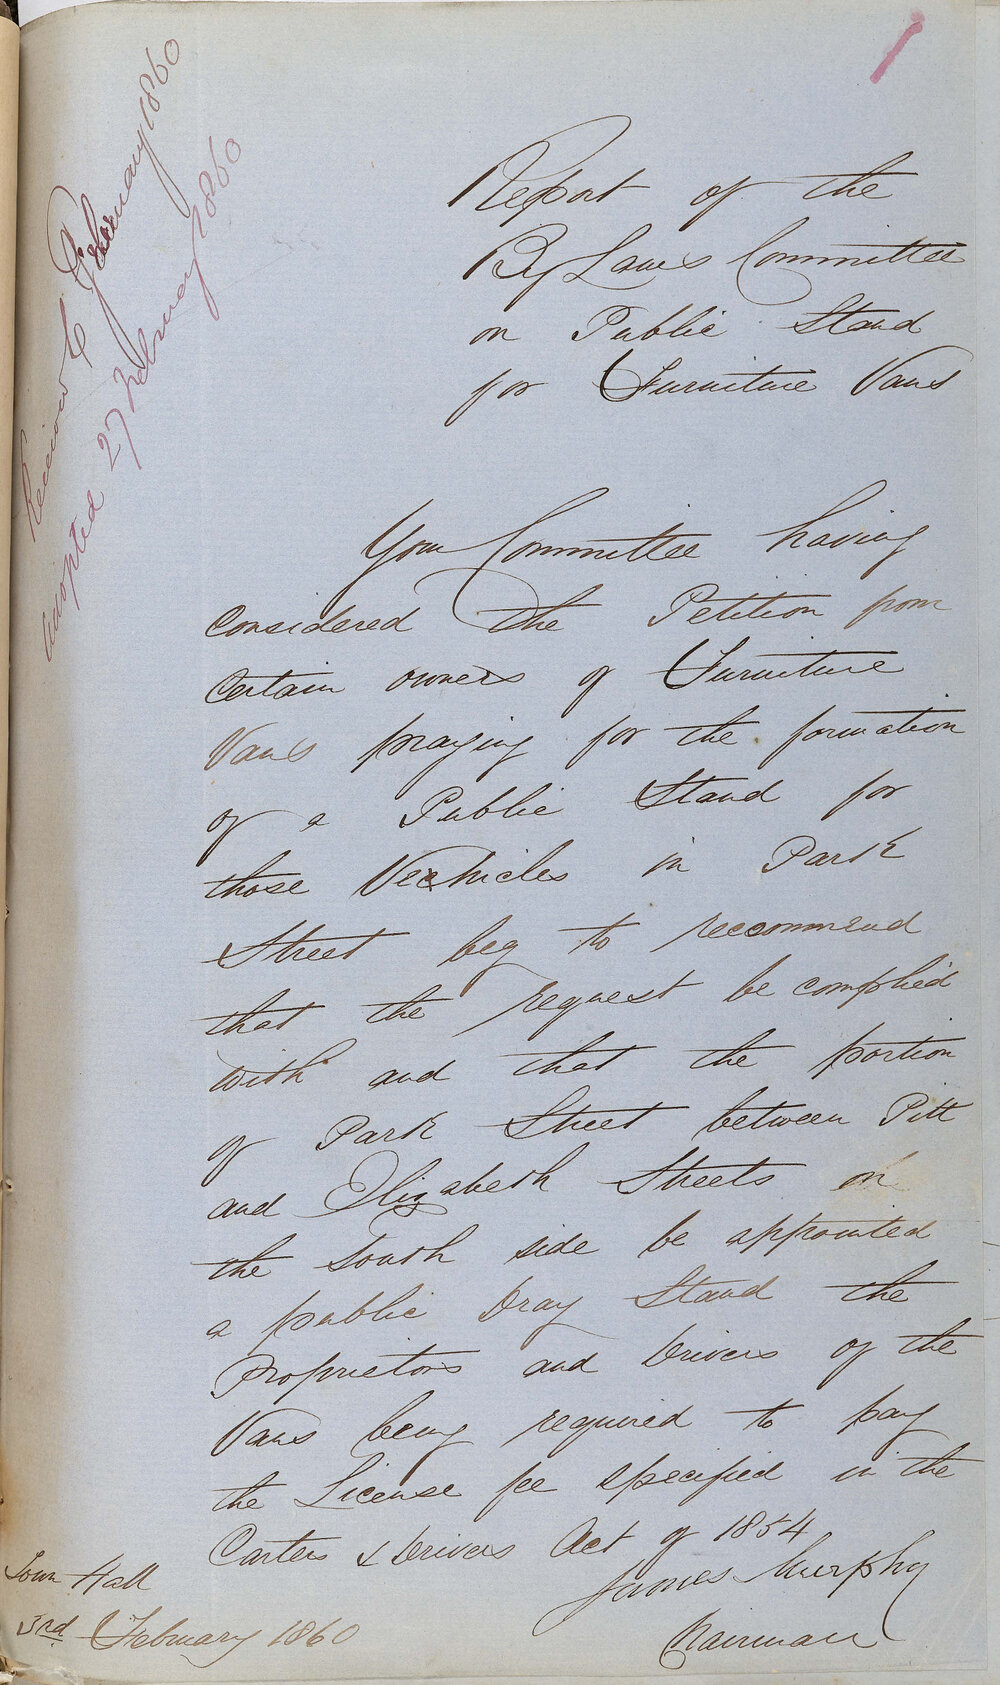 Received 6 February 1860
adopted 27 February 1860
Report of the
By Laws Committee
on Public Stand
for Furniture Vans
Your Committee having
considered the Petition from
Certain owners of Furniture
Vans praying for the formation
of a Public Stand for
those Vechicles in Park
Street beg to recommend
that the request be complied
with and that the portion
of Park Street between Pitt
and Elizabeth Streets on
the South side be appointed
a public Dray Stand the
Proprietors and Drivers of the
Vans being required to pay
the License fee specified in the
Carters & Drivers Act of 1854
James Murphy
Chairman
Town Hall
3rd February 1860